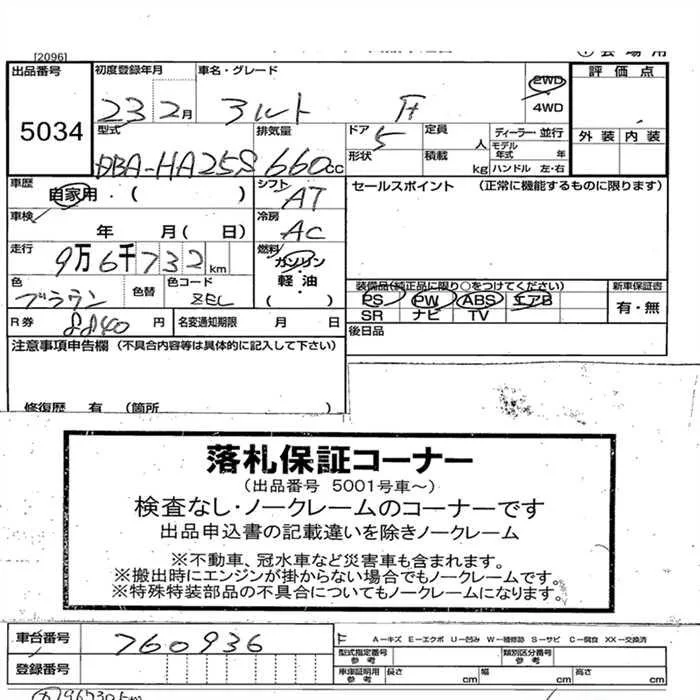 [2096]
出品番号 初度登録年月 車名・グレード 評価点
5034 23 2月 アルト F 2WD 4WD
外装 内装
型式 排気量 ドア 定員 ディーラー・並行
DBA-HA25S 660cc 5 人 モデル年式 年
形状 積載 kg ハンドル 左・右
車歴 自家用・( ) シフト AT セールスポイント (正常に機能するものに限ります)
車検 年 月( 日) 冷房 AC
走行 9万6千732km 燃料 ガソリン・軽油・( )
色 ブラウン 色替 色コード
装備品(純正品に限り○をつけてください) 新車保証書
PS PW ABS エアB 有・無
SR ナビ TV
R券 8840円 名変通知期限 月 日 後日品
注意事項申告欄 (不具合内容等は具体的に記入して下さい)
修復歴 有 (箇所 )
落札保証コーナー
(出品番号 5001号車～)
検査なし・ノークレームのコーナーです
出品申込書の記載違いを除きノークレーム
※不動車、冠水車など災害車も含まれます。
※搬出時にエンジンが掛からない場合でもノークレームです。
※特殊特装部品の不具合についてもノークレームになります。
車台番号 760936
A－キズ E－エクボ U－凹み W－補修跡 S－サビ C－腐食 XX－交換済
型式指定番号 参考 類別区分番号 参考
登録番号 車庫証明用 参考 長さ cm 幅 cm 高さ cm